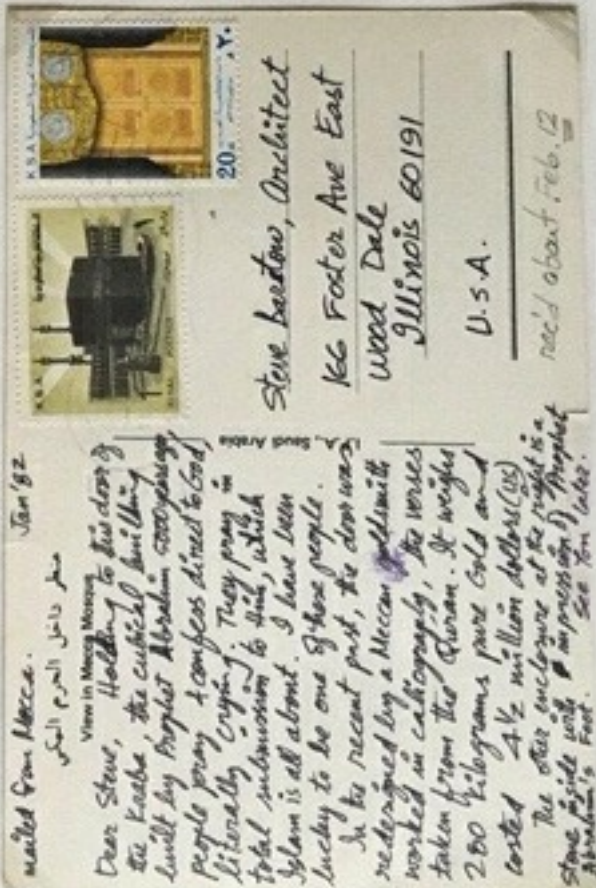 mailed from Mecca. Jan '82
منظر داخل الحرم المكي
View in Mecca Mosque
Dear Steve, Holding to this door of
the Kaaba, the cubical building
built by Prophet Abraham 5000 years ago,
people pray & confess direct to God,
literally crying. They pray in
total submission to Him, which
Islam is all about. I have been
lucky to be one of those people.
In the recent past, the door was
redesigned by a Meccan goldsmith
worked in caliography, the verses
taken from the Quran. It weighs
280 Kilograms pure Gold and
costed 4½ million dollars (US)
The other enclosure at the right is a
stone inside with impression of Prophet
Abraham's Foot. See You later.
Saudi Arabia
K S A
20
K S A
1
Steve Barstow, Architect
166 Foster Ave East
Wood Dale
Illinois 60191
U.S.A.
rec'd about Feb. 12